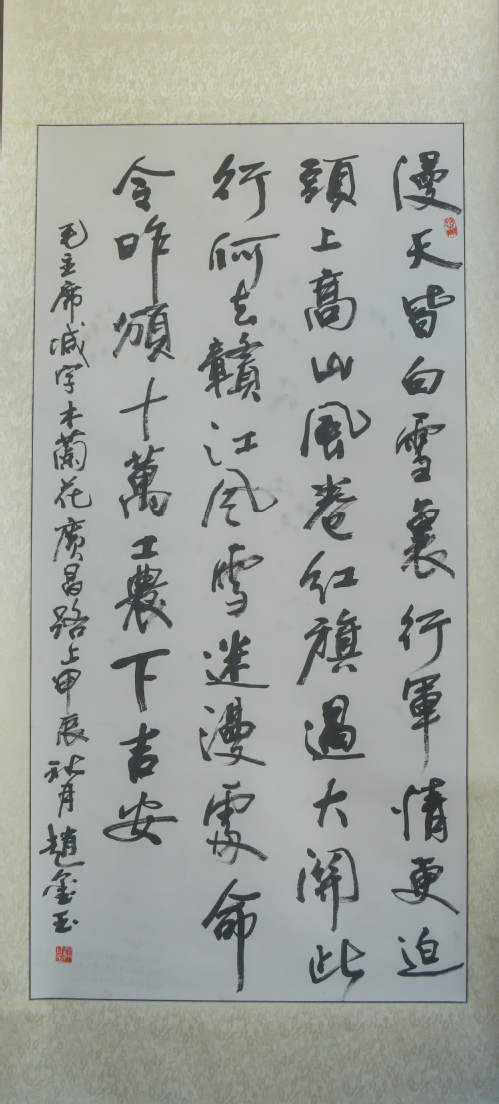 漫天皆白雪裏行軍情更迫
頭上高山風卷紅旗過大關此
行何去贛江风雪迷漫處命
令昨頒十萬工農下吉安
毛主席减字木蘭花廣昌路上甲辰秋月趙玉